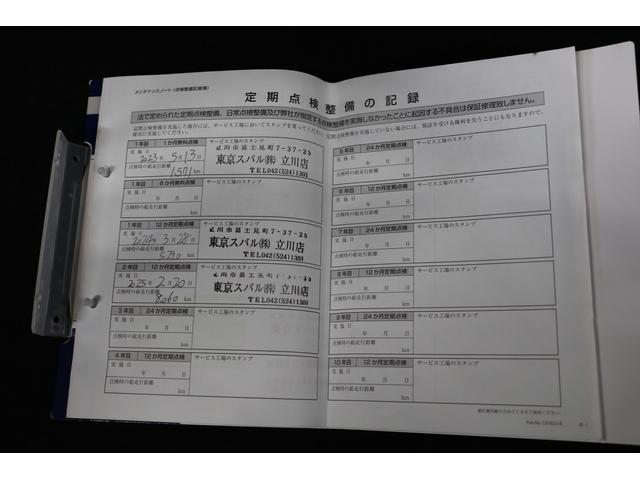 メンテナンスノート(点検整備記録簿)
定期点検整備の記録
法で定められた定期点検整備、日常点検整備及び弊社が指定する点検整備を実施しなかったことに起因する不具合は保証修理致しません。
定期点検整備を実施した場合には、サービス工場においてスタンプを貰ってください。定期点検整備を実施していない場合には、保証を受ける権利を失うことにもなりますので、
確実に実施してください。
1年目 1か月無料点検 サービス工場のスタンプ
実施日 立川市富士見町7-37-25
2023年5月13日 東京スバル㈱立川店
点検時の総走行距離 TEL042(524)1301
1571km
1年目 6か月無料点検 サービス工場のスタンプ
実施日
年 月 日
点検時の総走行距離
km
1年目 12か月定期点検 サービス工場のスタンプ
実施日 立川市富士見町7-37-25
2024年3月28日 東京スバル㈱立川店
点検時の総走行距離 TEL042(524)1301
5290km
2年目 12か月定期点検 サービス工場のスタンプ
実施日
2025年2月20日 東京スバル㈱立川店
点検時の総走行距離 TEL042(524)1301
8060km
3年目 24か月定期点検 サービス工場のスタンプ
実施日
年 月 日
点検時の総走行距離
km
4年目 12か月定期点検 サービス工場のスタンプ
実施日
年 月 日
点検時の総走行距離
km
5年目 24か月定期点検 サービス工場のスタンプ
実施日
年 月 日
点検時の総走行距離
km
6年目 12か月定期点検 サービス工場のスタンプ
実施日
年 月 日
点検時の総走行距離
km
7年目 24か月定期点検 サービス工場のスタンプ
実施日
年 月 日
点検時の総走行距離
km
8年目 12か月定期点検 サービス工場のスタンプ
実施日
年 月 日
点検時の総走行距離
km
9年目 24か月定期点検 サービス工場のスタンプ
実施日
年 月 日
点検時の総走行距離
km
10年目 12か月定期点検 サービス工場のスタンプ
実施日
年 月 日
点検時の総走行距離
km